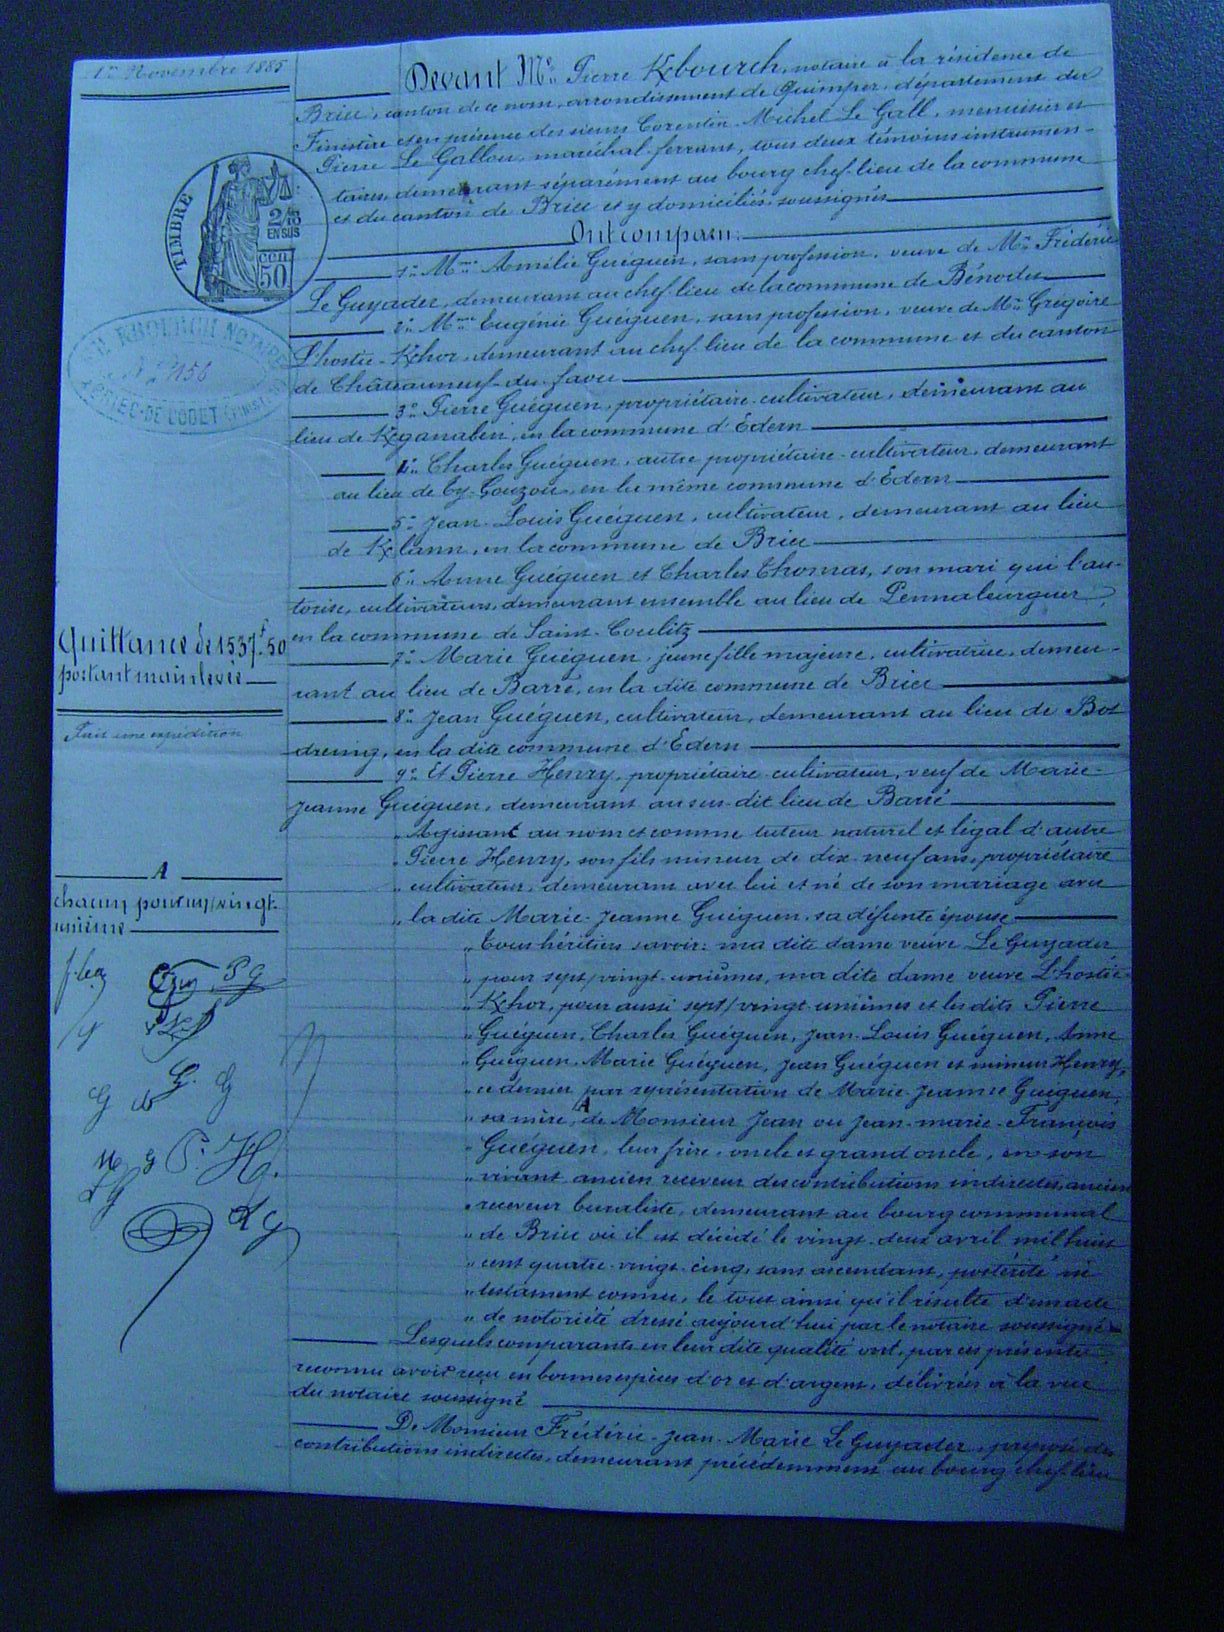 1er Novembre 1885
Devant Me Pierre Kbourch, notaire à la résidence de
Briec, canton de ce nom, arrondissement de Quimper, département du
Finistère et en présence des sieurs Corentin-Michel Le Gall, menuisier et
Pierre Le Gallou, maréchal-ferrant, tous deux témoins instrumen-
taires, demeurant séparément au bourg chef-lieu de la commune
et du canton de Briec et y domiciliés, soussignés
TIMBRE
2/10
EN SUS
50 cen
Ont comparu:
1° Mme Amélie Guéguen, sans profession, veuve de Mr Frédéric
Le Guyader, demeurant au chef-lieu de la commune de Bénodet
2° Mme Eugénie Guéguen, sans profession, veuve de Mr Grégoire
L'hostic-Khor, demeurant au chef-lieu de la commune et du canton
de Châteauneuf-du-faou
NOTAIRE
BRIEC-DE-L'ODET
3° Pierre Guéguen, propriétaire-cultivateur, demeurant au
lieu de Kganaben, en la commune d'Edern
4° Charles Guéguen, autre propriétaire-cultivateur, demeurant
au lieu de Ty-Gouzou, en la même commune d'Edern
5° Jean-Louis Guéguen, cultivateur, demeurant au lieu
de Klann, en la commune de Briec
6° Anne Guéguen et Charles Thomas, son mari qui l'au-
torise, cultivateurs, demeurant ensemble au lieu de Pennaleurguer,
en la commune de Saint-Coulitz
Quittance de 1537f.50
portant mainlevée
7° Marie Guéguen, jeune fille majeure, cultivatrice, demeu-
rant au lieu de Barré, en la dite commune de Briec
8° Jean Guéguen, cultivateur, demeurant au lieu de Bot
dreing, en la dite commune d'Edern
Fait une expédition
9° Et Pierre Henry, propriétaire-cultivateur, veuf de Marie-
Jeanne Guéguen, demeurant au sus-dit lieu de Barré
„ Agissant au nom et comme tuteur naturel et légal d'autre
„ Pierre Henry, son fils mineur de dix-neuf ans, propriétaire
„ cultivateur, demeurant avec lui et né de son mariage avec
„ la dite Marie-Jeanne Guéguen, sa défunte épouse
A
chacun pour un/vingt-
unième
„ Tous héritiers savoir: ma dite dame veuve Le Guyader
„ pour sept/vingt-unièmes, ma dite dame veuve L'hostic-
„ Khor, pour aussi sept/vingt-unièmes et les dits Pierre
„ Guéguen, Charles Guéguen, Jean-Louis Guéguen, Anne
„ Guéguen, Marie Guéguen, Jean Guéguen et mineur Henry,
„ ce dernier par représentation de Marie-Jeanne Guéguen,
„ sa mère, A de Monsieur Jean ou Jean-Marie-François
„ Guéguen, leur frère, oncle et grand oncle, en son
„ vivant ancien receveur des contributions indirectes, ancien
„ receveur buraliste, demeurant au bourg communal
„ de Briec où il est décédé le vingt-deux avril mil huit
„ cent quatre-vingt-cinq, sans ascendant, postérité ni
„ testament connu, le tout ainsi qu'il résulte d'un acte
„ de notoriété dressé aujourd'hui par le notaire soussigné
P. G
P. H.
Lesquels comparants en leur dite qualité ont, par ces présentes,
reconnu avoir reçu en bonnes espèces d'or et d'argent, délivrées à la vue
du notaire soussigné
De Monsieur Frédéric-Jean-Marie Le Guyader, préposé des
contributions indirectes, demeurant précédemment au bourg chef-lieu